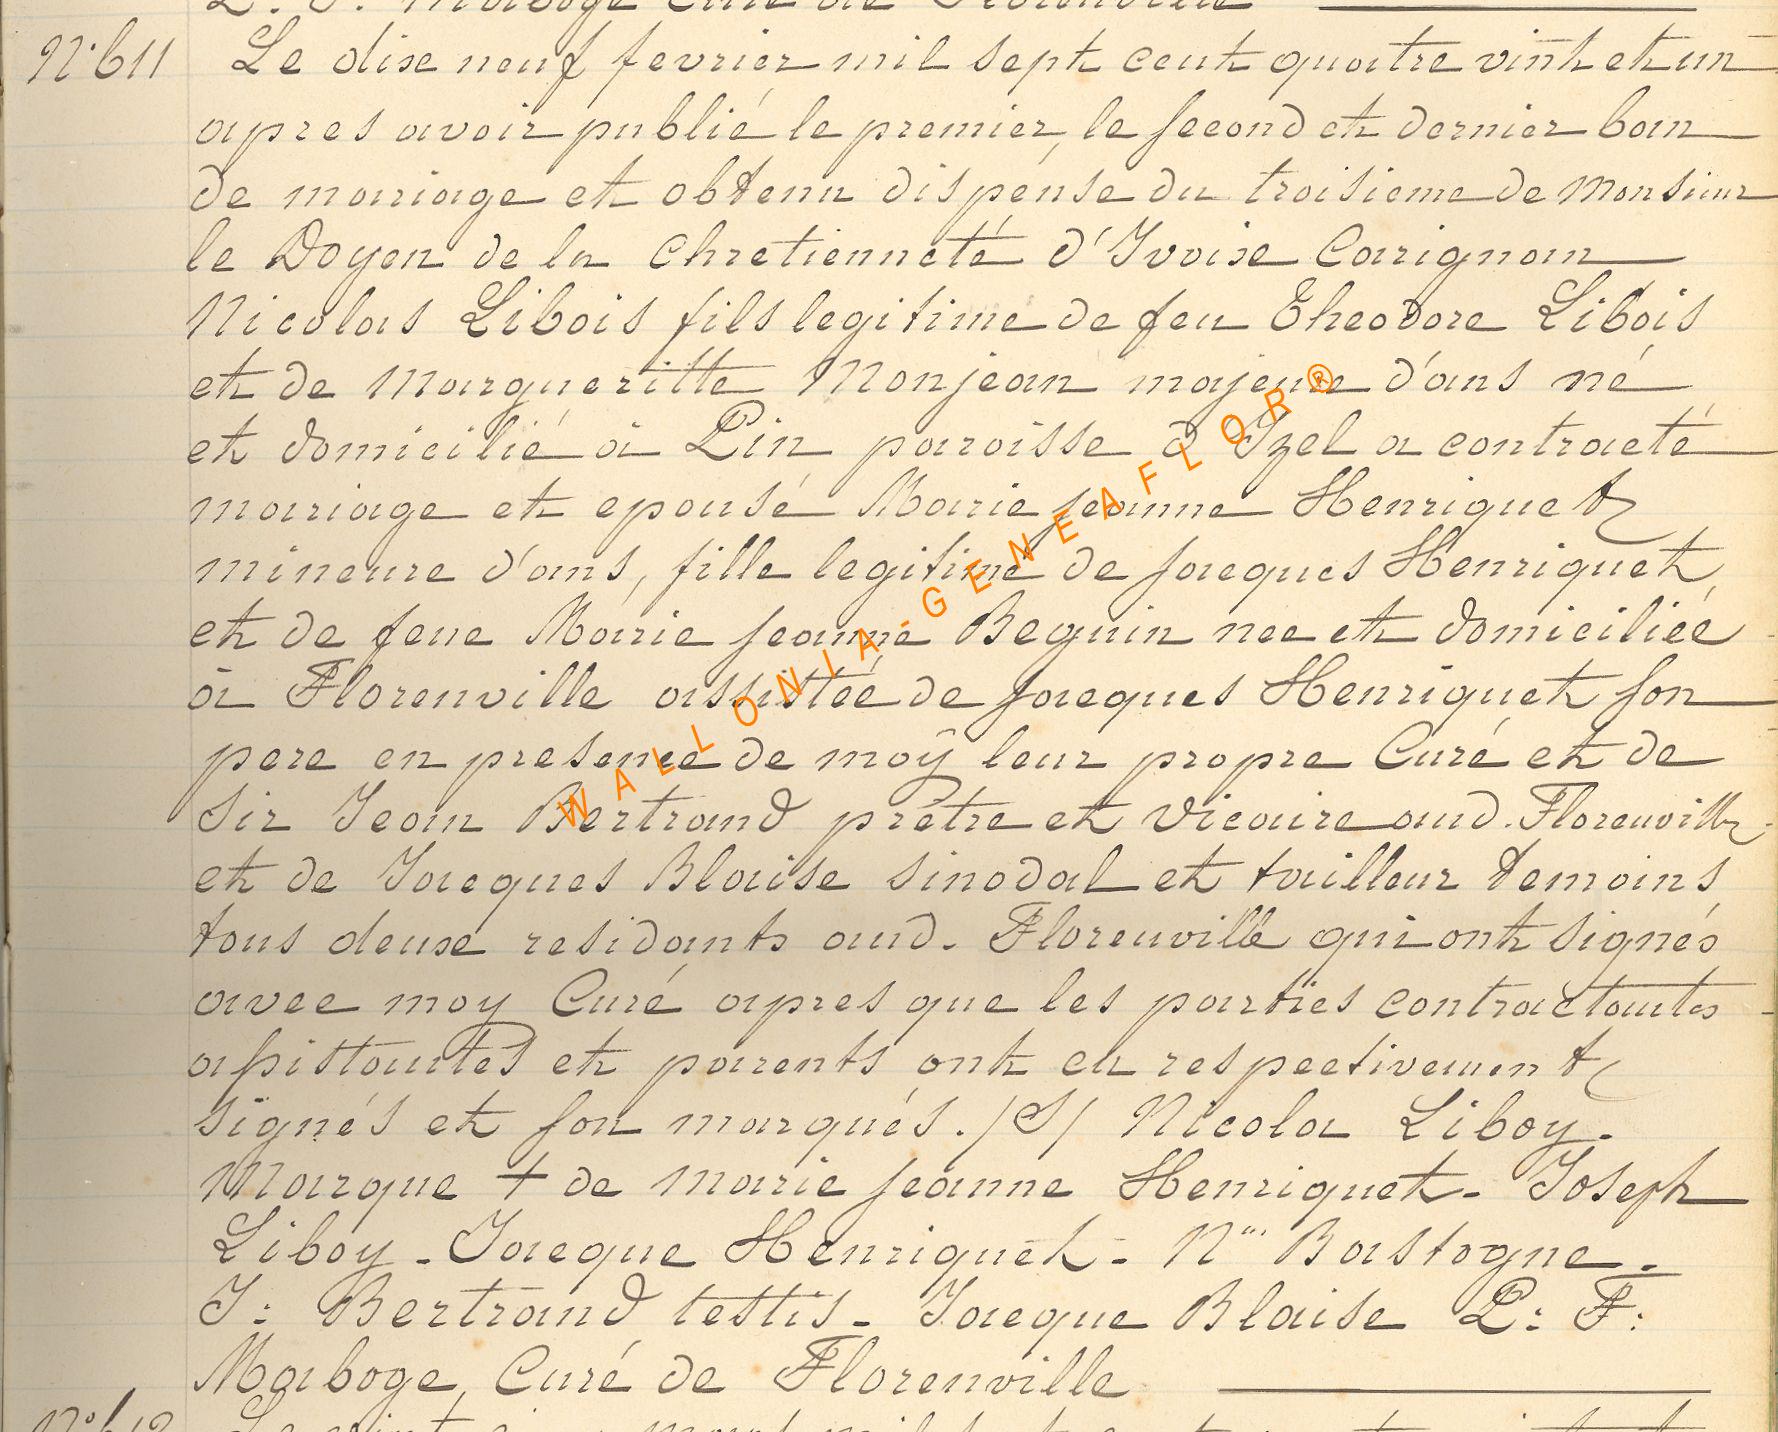 L. F. Maboge Curé de Florenville
N°611 Le dixe neuf fevrier mil sept cent quatre vint et un
apres avoir publié le premier, le second et dernier ban
de mariage et obtenu dispense du troisieme de Monsieur
le Doyen de la Chretienneté d'Ivoixe Carignan
Nicolas Libois fils legitime de feu Theodore Libois
et de Margueritte Monjean majeure d'ans né
et domicilié à Pin paroisse d Izel a contracté
mariage et epousé Marie jeanne Henriquet
mineure d'ans, fille legitime de jacques Henriquet,
et de feue Marie jeanne Beguin nee et domiciliée
à Florenville assistée de jacques Henriquet son
pere en presence de moÿ leur propre Curé et de
Sir Jean Bertrand prêtre et Vicaire aud. Florenville
et de Jacques Blaise sinodal et tailleur temoins,
tous deuxe residants aud. Florenville qui ont signés
avec moy Curé apres que les parties contractantes
assistantes et parents ont eu respectivement
signés et sou marqués. /S/ Nicola Liboy.
Marque + de marie jeanne Henriquet - Joseph
Liboy - Jacque Henriquet - N''' Bastogne -
J: Bertrand testis - Jacque Blaise L: F:
Maboge, Curé de Florenville
WALLONIA-GENEAFLOR®